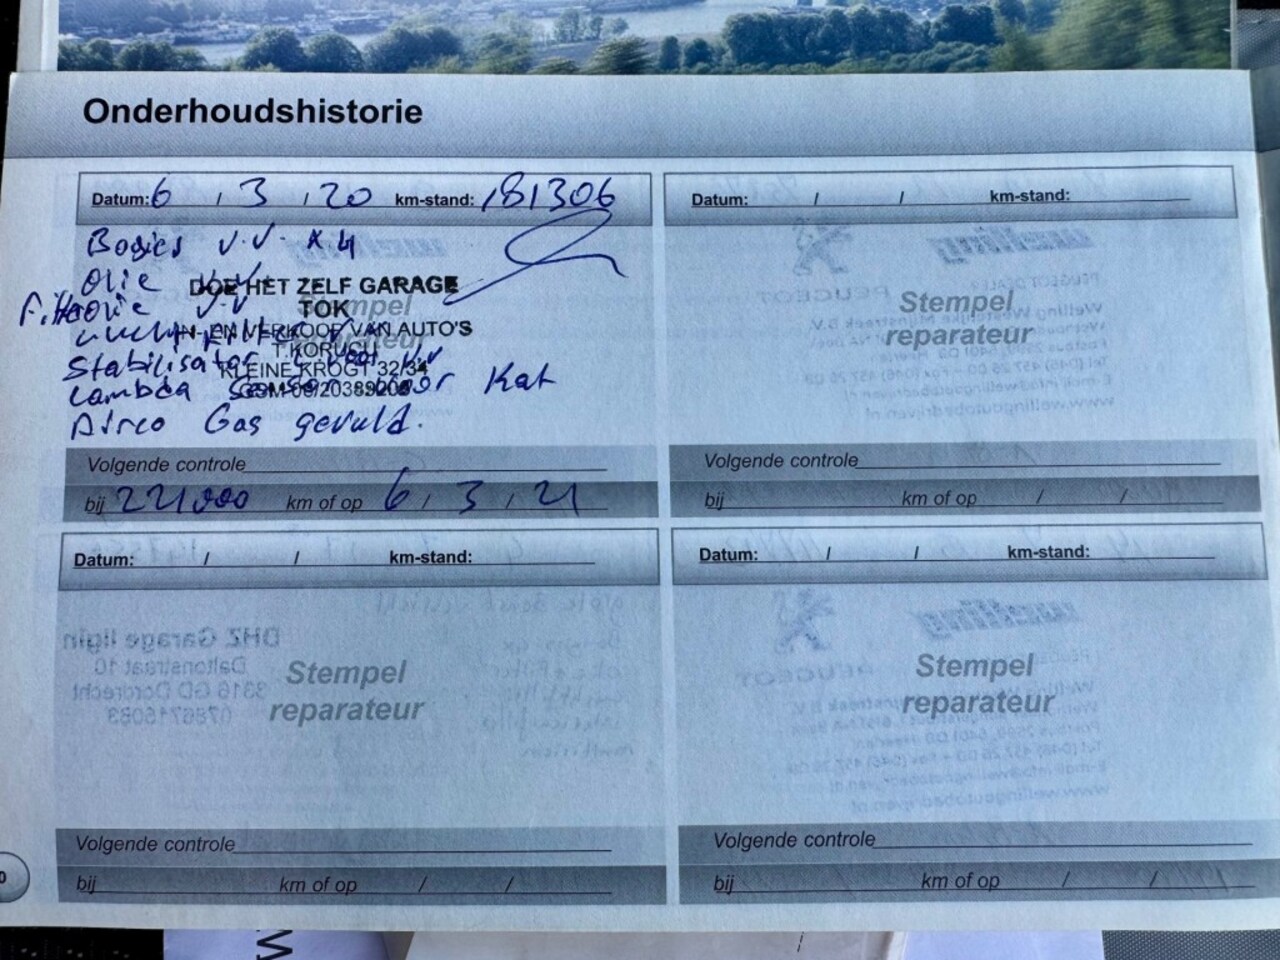 Onderhoudshistorie
Datum: 6 / 3 / 20 km-stand: 181306
Bogies v.v. x 4
Olie v.v
DOE HET ZELF GARAGE
Filter olie v.v
TOK
Stempel
reparateur
IN- EN VERKOOP VAN AUTO'S
T.KORUCU
Stabilisator v.v
KLEINE KROGT 32/34
Lambda sensor voor Kat
GSM 06/20389208
Airco Gas gevuld.
Volgende controle
bij 221000 km of op 6 / 3 / 21
Datum: / / km-stand:
Stempel
reparateur
Volgende controle
bij km of op / /
Datum: / / km-stand:
DHZ Garage Ilgin
Daltonstraat 10
3316 GD Dordrecht
0786716083
Stempel
reparateur
Volgende controle
bij km of op / /
Datum: / / km-stand:
PEUGEOT
Stempel
reparateur
Volgende controle
bij km of op / /